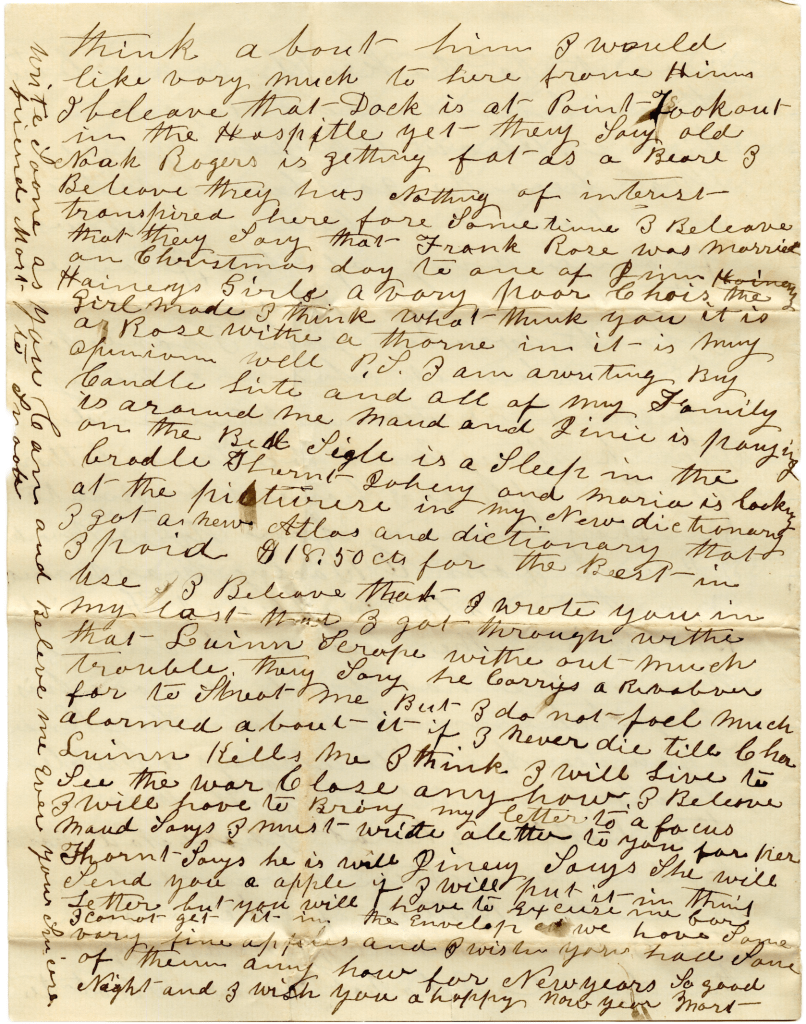 think about him I would
like vary much to here frome Him
I beleave that Dock is at Point Lookout
in the Hospitle yet they Say old
Noah Rogers is getting fat as a Beare I
Beleave they has Nothing of interest
transpired here fore Some time I Beleave
that they Say that Frank Rose was Married
on Christmas day to one of Jim Haineys
Haineys Girls a vary poor Chois the
Girl made I think what think you it is
a Rose withe a thorne in it is my
opinion well P.S. I am awriting By
Candle Lite and all of my Family
is around me Maud and Jinie is playing
on the Bed Sigle is a Sleep in the
Cradle Thornt Johny and Maria is looking
at the pictures in my New dictionary
I got a new Atlas and dictionary that
I paid $18.50 cts for the Best in
use I Beleave that I wrote you in
my last that I got through withe
that Quinn Scrape withe out much
trouble. they Say he Carrys a Revolver
for to Shoot me But I do not feel much
alarmed about it if I Never die till Cha
Quinn Kills me I think I will Live to
See the war Close any how. I Beleave
I will have to Bring my letter to a focus
Maud Says I must write a letter to you for Her
Thornt Says he is well Jiney Says She will
Send you a apple if I will put it in this
Letter but you will have to Excuse me for
I canot get it in the Envelop we have Some
vary fine apples and I wish you had Some
of them any how for New years So good
Night and I wish you a happy New year Mort
Write Soone as you Can and Beleve me Ever your Sincere
friend Mort to Snook